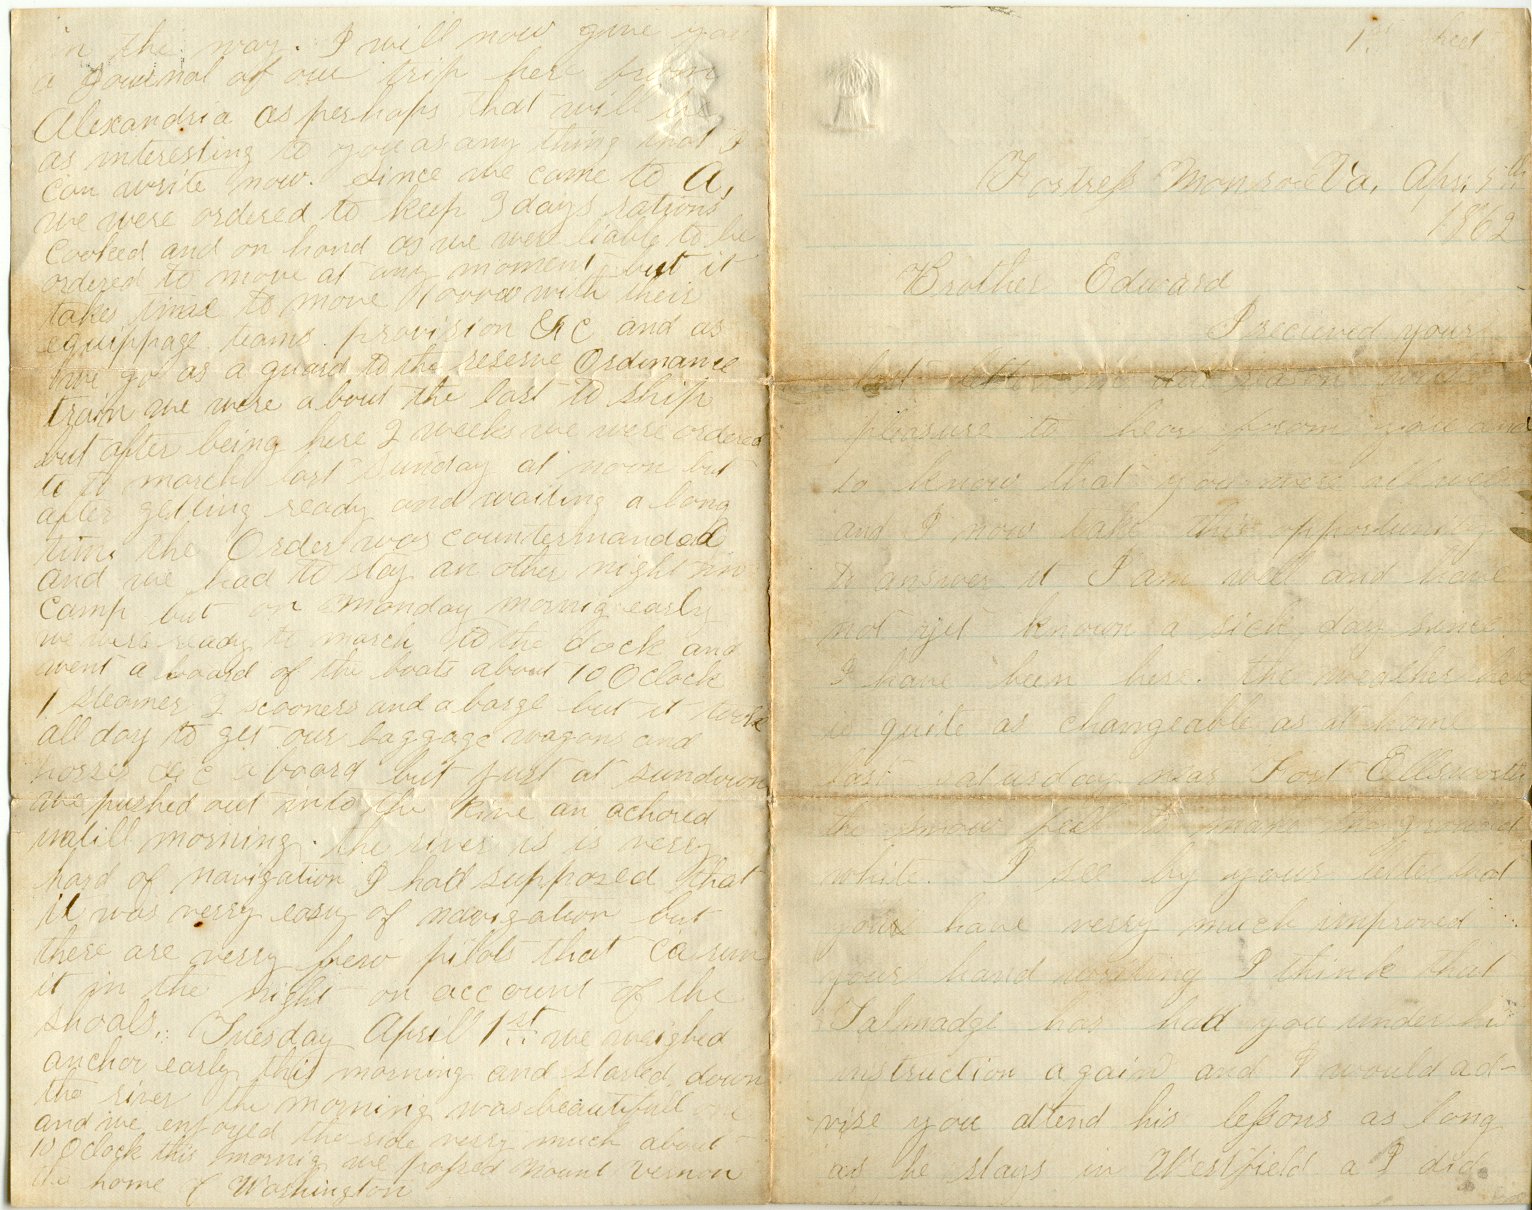 1st sheet
Fortress Monroe Va. Apr. 5th
1862
Brother Edward
I recieved your
last letter in due season with
pleasure to hear from you and
to know that you were all well
and I now take this opportunity
to answer it I am well and have
not yet known a sick day since
I have been here. the weather here
is quite as changeable as at home
last saturday near Fort Ellsworth
the snow fell to make the ground
white. I see by your letter that
you have verry much improved
your hand writing I think that
Talmadge has had you under his
instruction again and I would ad-
vise you attend his lessons as long
as he stays in Westfield a I did
in the war. I will now give you
a journal of our trip here from
Alexandria as perhaps that will be
as interesting to you as any thing that I
can write now. since we came to A,
we were ordered to keep 3 days rations
cooked and on hand as we were liable to be
ordered to move at any moment but it
takes time to move with their
equippage teams provision &c and as
we go as a guard to the reserve Ordinance
train we were about the last to ship
but after being here 2 weeks we were ordered
to march last sunday at noon but
after getting ready and waiting a long
time the Order was countermanded
and we had to stay an other night in
camp but on monday mornig early
we were ready to march to the dock and
went a board of the boats about 10 Oclock
1 steamer 2 scooners and a barge but it took
all day to get our baggage wagons and
horses &c a board but just at sundown
we pushed out into the rive an achored
untill morning. the river is is verry
hard of navigation I had supposed that
it was verry easy of navigation but
there are verry few pilots that ca run
it in the night on account of the
shoals. Tuesday April 1st we weighed
anchor early this morning and started down
the river the morning was beautifull one
and we enjoyed the ride verry much about
10 Oclock this mornig we passed Mount Vernon
the home of Washington